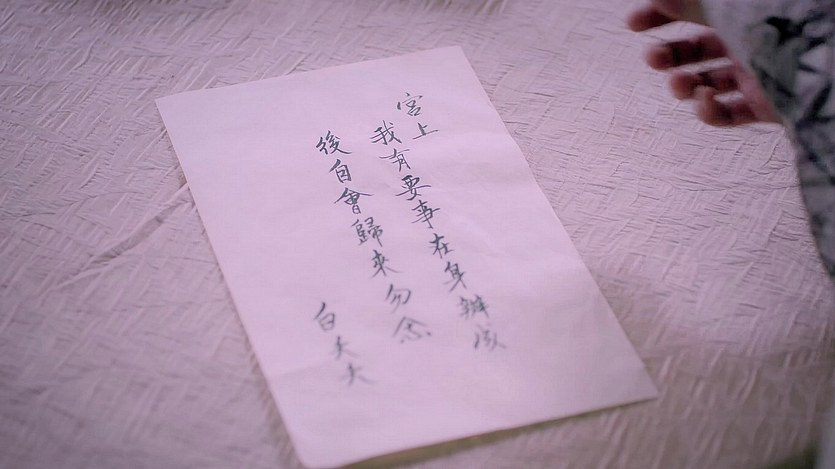 宮上
我有要事在身辦成
後自會歸來勿念
白大夫